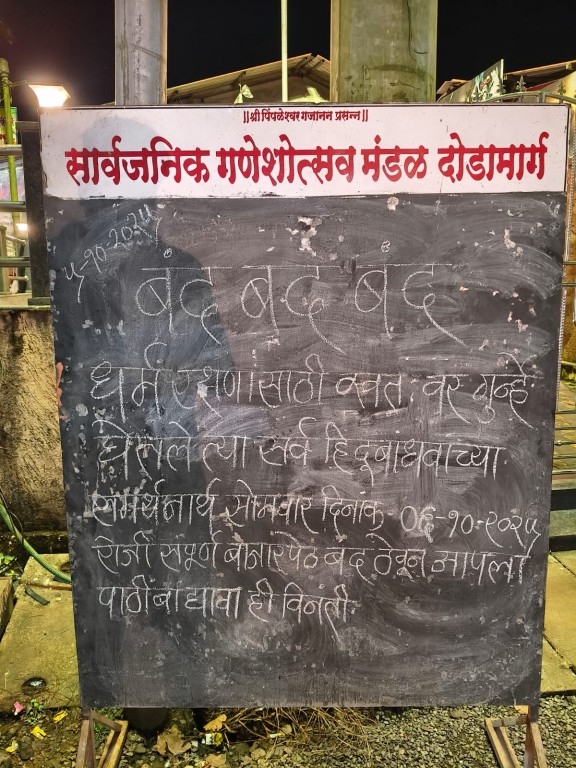 ||श्री पिंपळेश्वर गजानन प्रसन्न||
सार्वजनिक गणेशोत्सव मंडळ दोडामार्ग
५-१०-२०२५
बंद बंद बंद
धर्म रक्षणासाठी स्वतः वर गुन्हे
घेतलेल्या सर्व हिंदूबांधवाच्या
समर्थनार्थ सोमवार दिनांक ०६-१०-२०२५
रोजी संपूर्ण बाजारपेठ बंद ठेवून आपला
पाठींबा द्यावा ही विनंती.